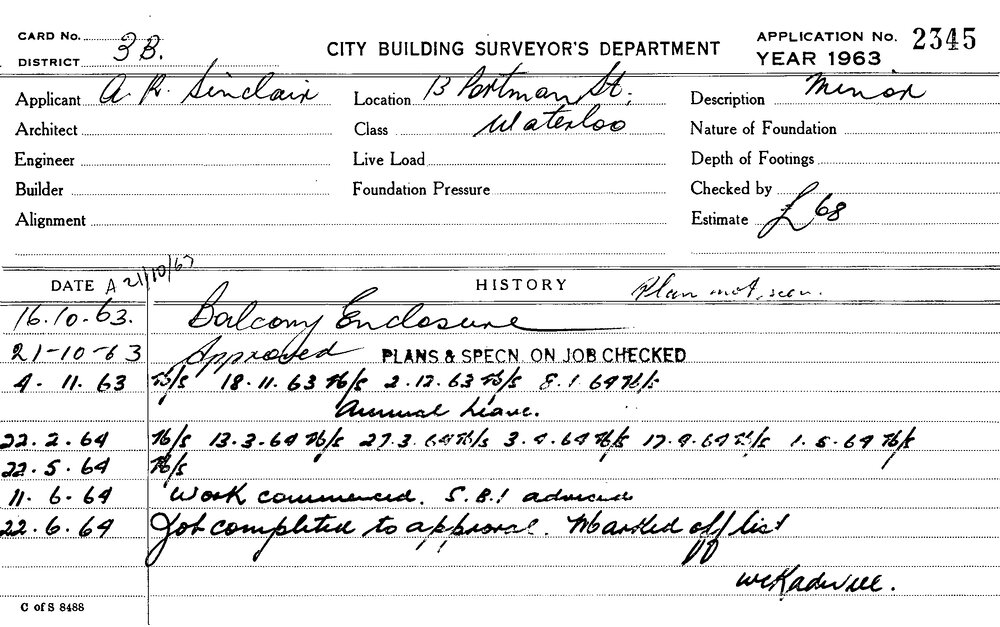 CARD No.
DISTRICT 3B.
CITY BUILDING SURVEYOR'S DEPARTMENT
APPLICATION No. 2345
YEAR 1963
Applicant A. R. Sinclair Location 13 Portman St; Description Minor
Architect Class Waterloo Nature of Foundation
Engineer Live Load Depth of Footings
Builder Foundation Pressure Checked by
Alignment Estimate £68
DATE A 21/10/63 HISTORY Plan not seen.
16.10.63. Balcony Enclosure
21-10-63 Approved PLANS & SPECN. ON JOB CHECKED
4. 11. 63 N/s 18.11.63 N/s 2.12.63 N/s 8.1.64 N/s
Annual Leave.
22.2.64 N/s 13.3.64 N/s 27.3.64 N/s 3.4.64 N/s 17.4.64 N/s 1.5.64 N/s
22.5.64 N/s
11. 6. 64 Work commenced. S.B.I advised
22.6.64 Job completed to approval. Marked off list
C of S 8488